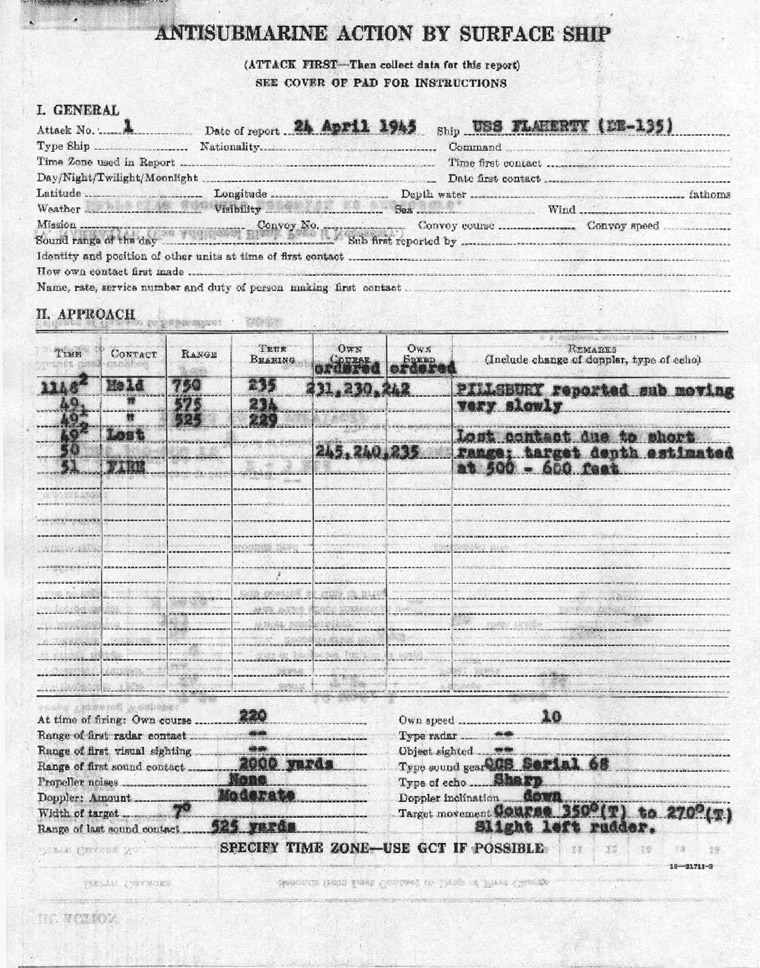 ANTISUBMARINE ACTION BY SURFACE SHIP
(ATTACK FIRST—Then collect data for this report)
SEE COVER OF PAD FOR INSTRUCTIONS
I. GENERAL
Attack No. 1 Date of report 24 April 1945 Ship USS FLAHERTY (DE-135)
Type Ship Nationality Command
Time Zone used in Report Time first contact
Day/Night/Twilight/Moonlight Date first contact
Latitude Longitude Depth water fathoms
Weather Visibility Sea Wind
Mission Convoy No. Convoy course Convoy speed
Sound range of the day Sub first reported by
Identity and position of other units at time of first contact
How own contact first made
Name, rate, service number and duty of person making first contact
II. APPROACH
TIME CONTACT RANGE TRUE BEARING OWN COURSE ordered OWN SPEED ordered REMARKS (Include change of doppler, type of echo)
1148² Held 750 235 231,230,242 PILLSBURY reported sub moving
49 " 575 234 very slowly
49¹ " 525 229
49² Lost Lost contact due to short
50 245,240,235 range; target depth estimated
51 FIRE at 500 - 600 feet
At time of firing: Own course 220 Own speed 10
Range of first radar contact -- Type radar --
Range of first visual sighting -- Object sighted --
Range of first sound contact 2000 yards Type sound gear QCS Serial 68
Propeller noises None Type of echo Sharp
Doppler: Amount Moderate Doppler inclination down
Width of target 7° Target movement Course 350°(T) to 270°(T)
Range of last sound contact 525 yards Slight left rudder.
SPECIFY TIME ZONE—USE GCT IF POSSIBLE
16—31711-2